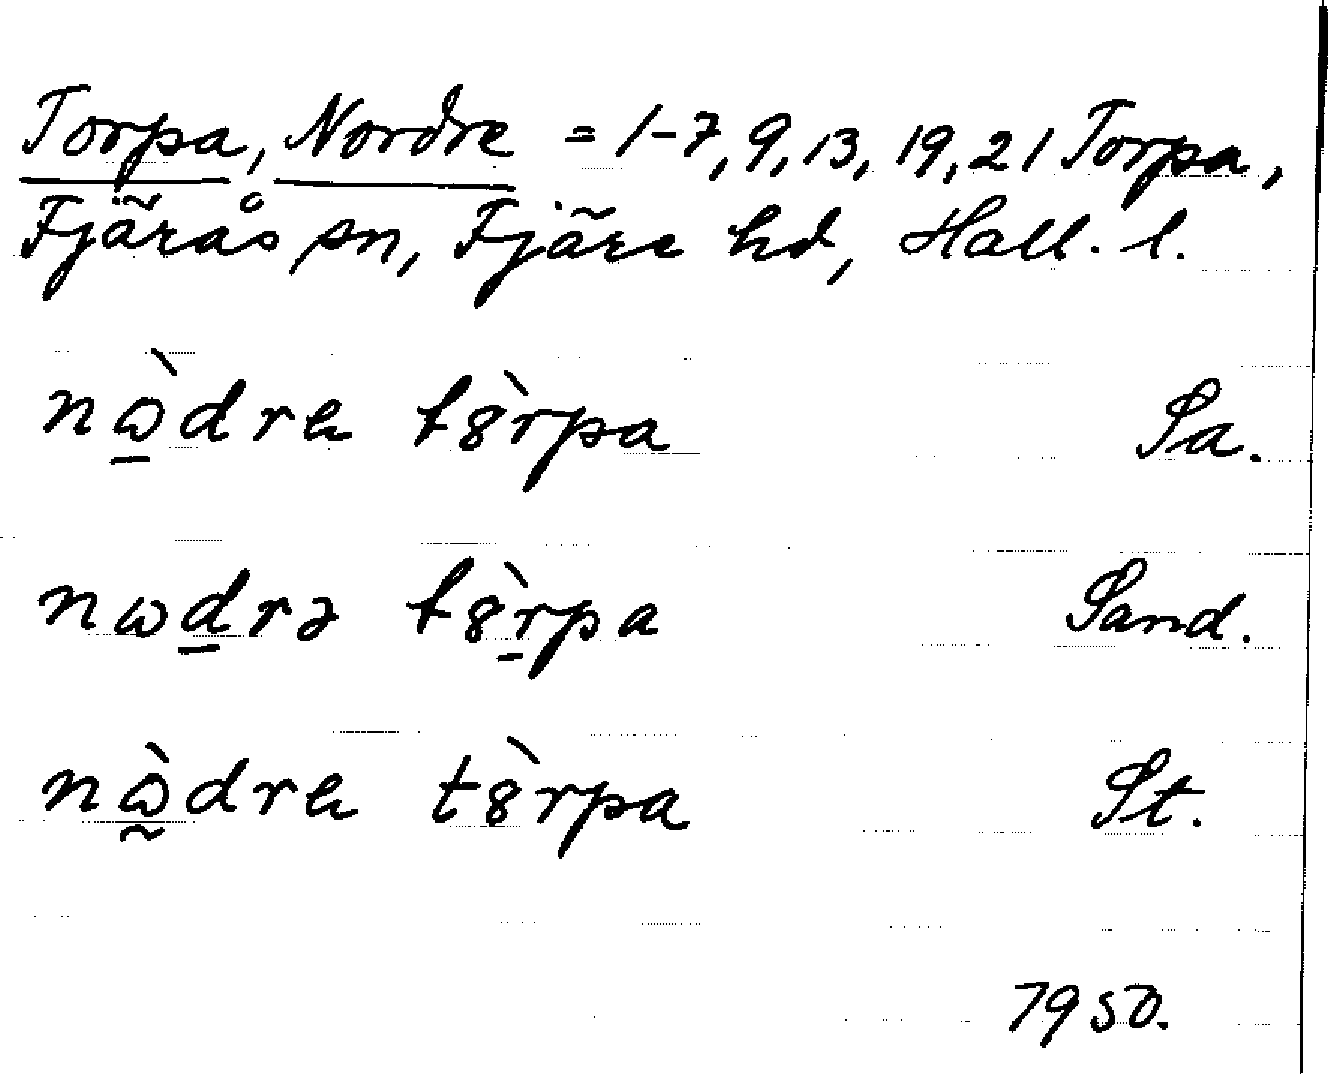 Torpa, Nordre = 1-7, 9, 13, 19, 21 Torpa,
Fjärås sn, Fjäre hd, Hall. l.
nὼ̠drɐ t8̀rpa Sa.
nωd̠rə t8̀r̠pa Sand.
nὼ̰drɐ t8̀rpa St.
1950.